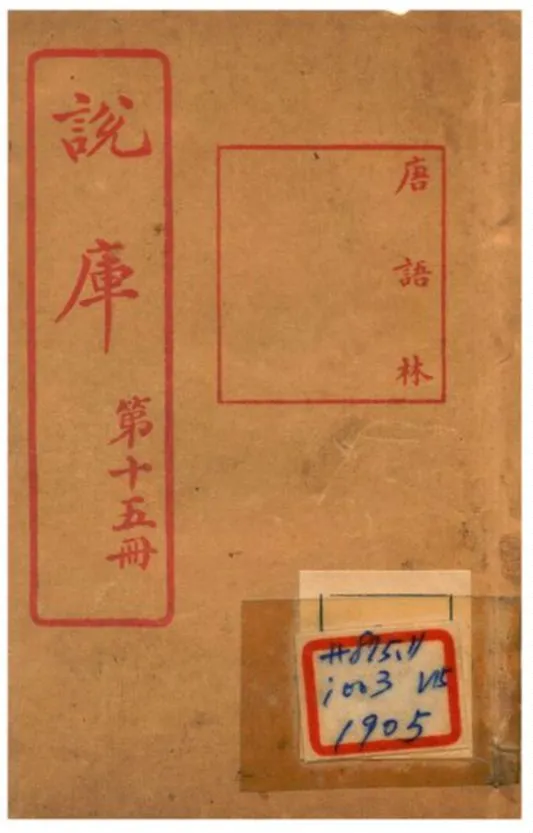 說庫 第十五冊
唐語林
#895.11
i003 V15
1905